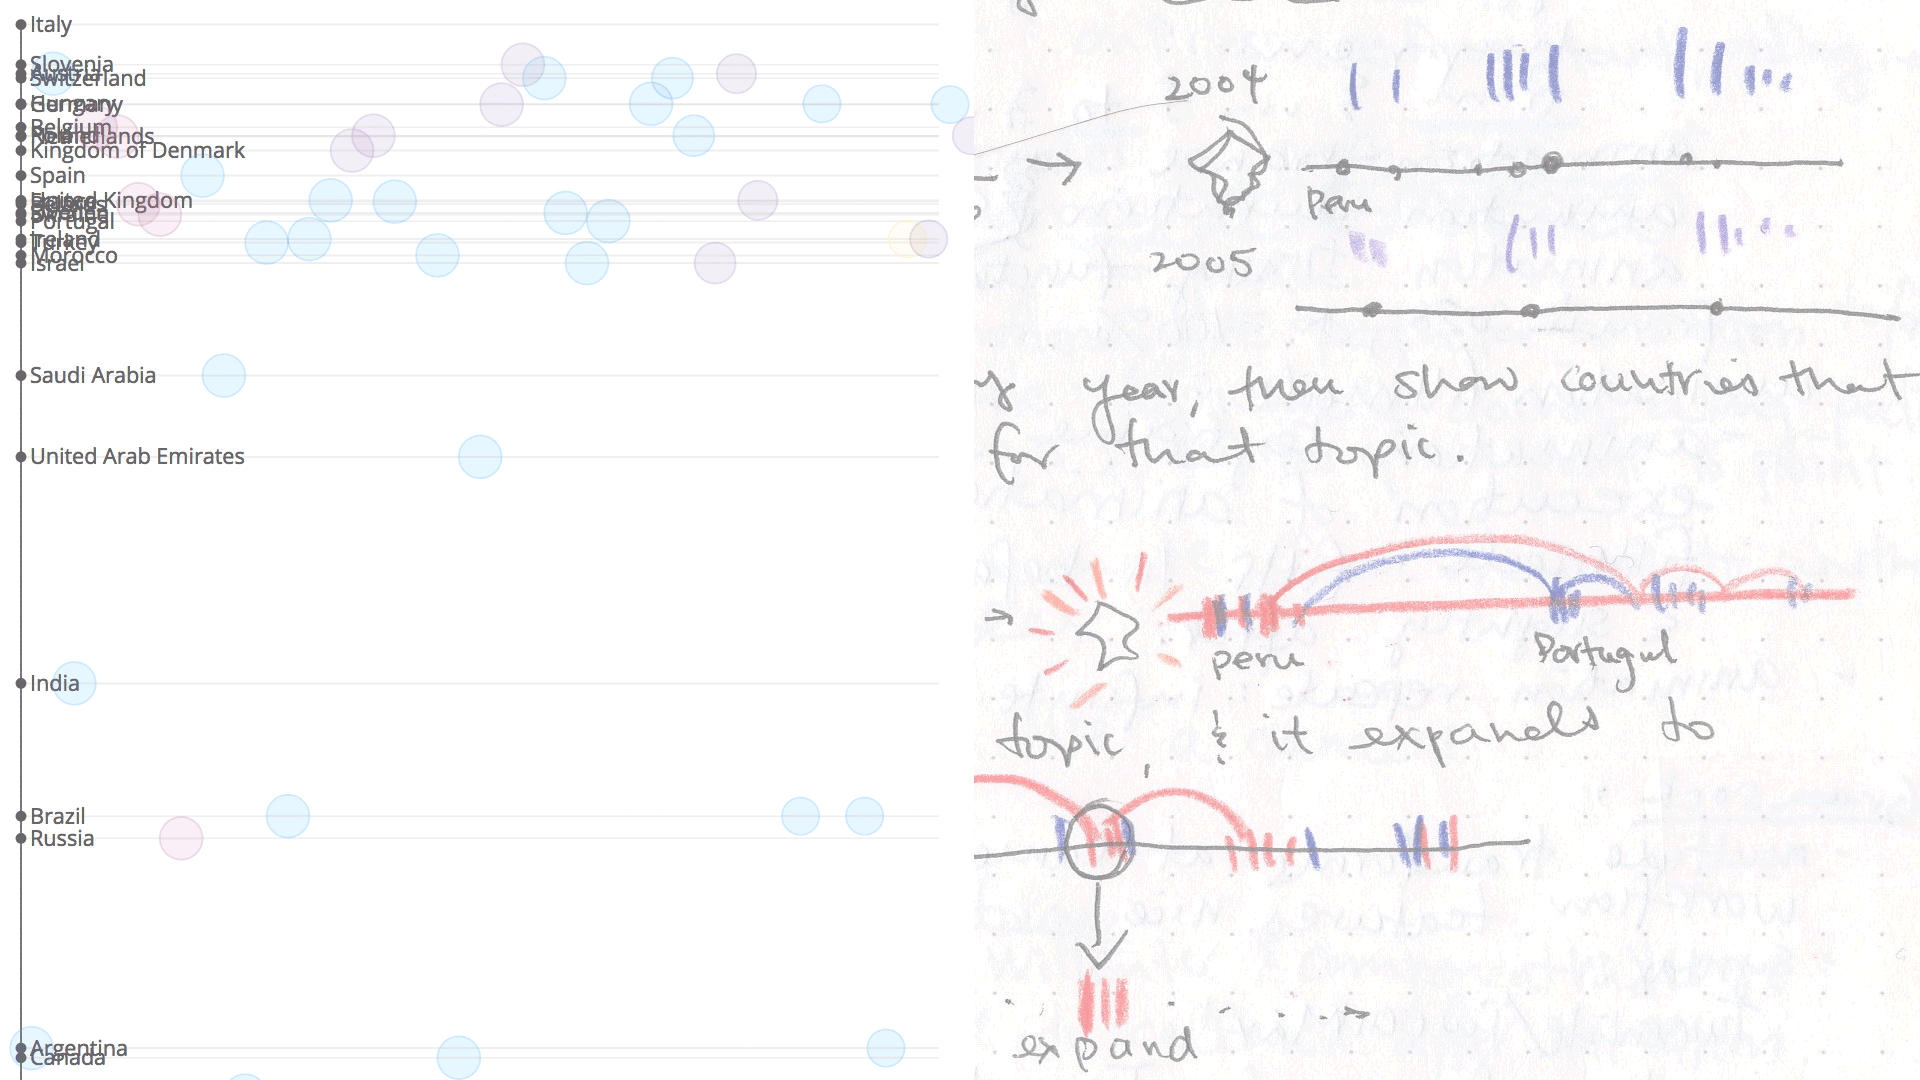 Italy
Slovenia
Austria
Switzerland
Hungary
Germany
Belgium
Kingdom of Denmark
Spain
United Kingdom
Sweden
Portugal
Ireland
Turkey
Morocco
Israel
Saudi Arabia
United Arab Emirates
India
Brazil
Russia
Argentina
Canada
2004
Peru
2005
year, then show countries that
for that topic.
peru
Portugul
topic, & it expands to
expand